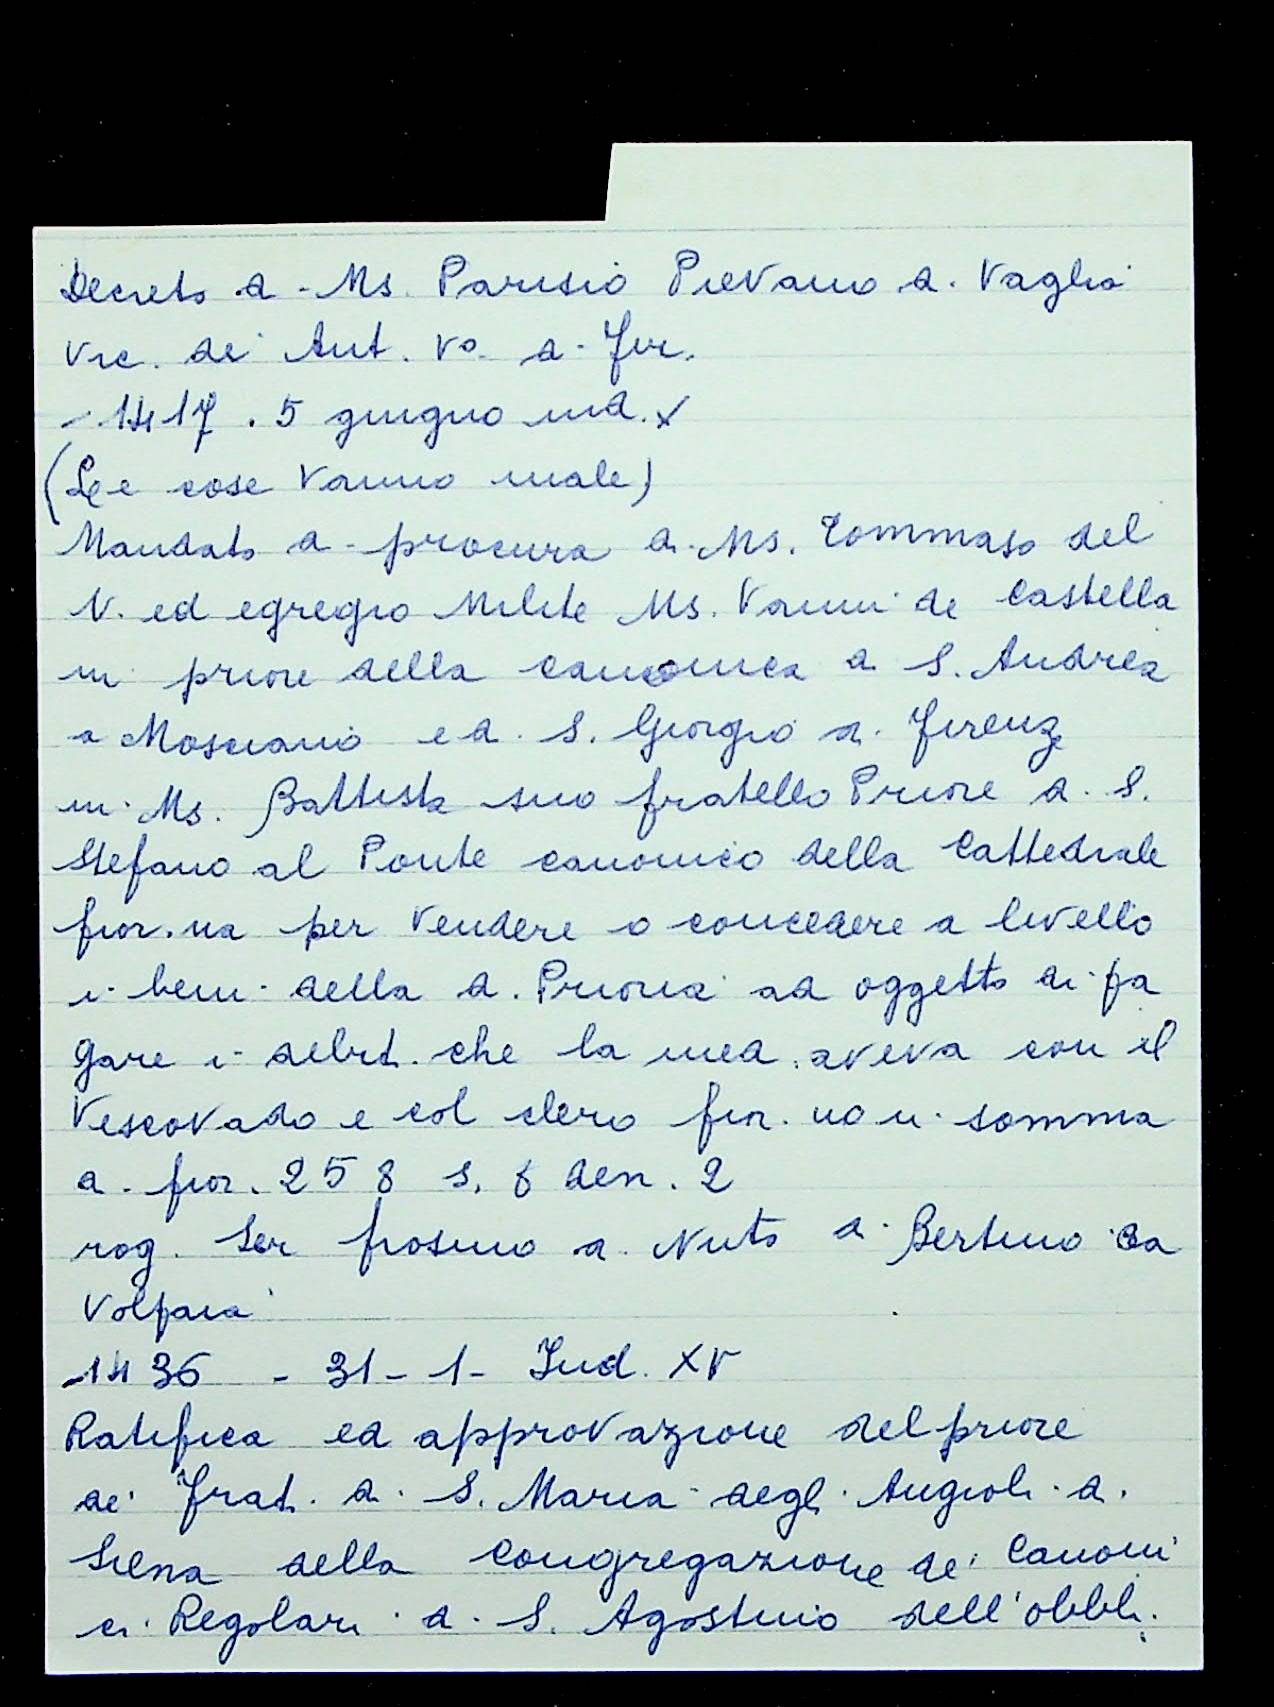 Decreto di Ms. Parisio Pievano di Vaglia
Vic. dei Ant. Vo. di Fir.
- 1417. 5 giugno ind. X
(Le cose vanno male)
Mandato di procura di Ms. Tommaso del
N. ed egregio Milite Ms. Vanni de Castella
ni priore della canonica di S. Andrea
a Mosciano e di S. Giorgio di Firenz
in Ms. Battista suo fratello Priore di S.
Stefano al Ponte canonico della Cattedrale
fior.na per vendere o concedere a livello
i beni della d. Prioria ad oggetto di pa
gare i debit. che la med. aveva con il
Vescovado e col clero fior.no in somma
di fior. 258 s. 8 den. 2
rog. Ser Frosino di Nuto di Bertino da
Volpaia
1436 - 31 - 1 - Ind. XV
Ratifica ed approvazione del priore
dei Frat. di S. Maria degli Angioli di
Siena della Congregazione dei Canoni
ci Regolari di S. Agostino dell'obbli.